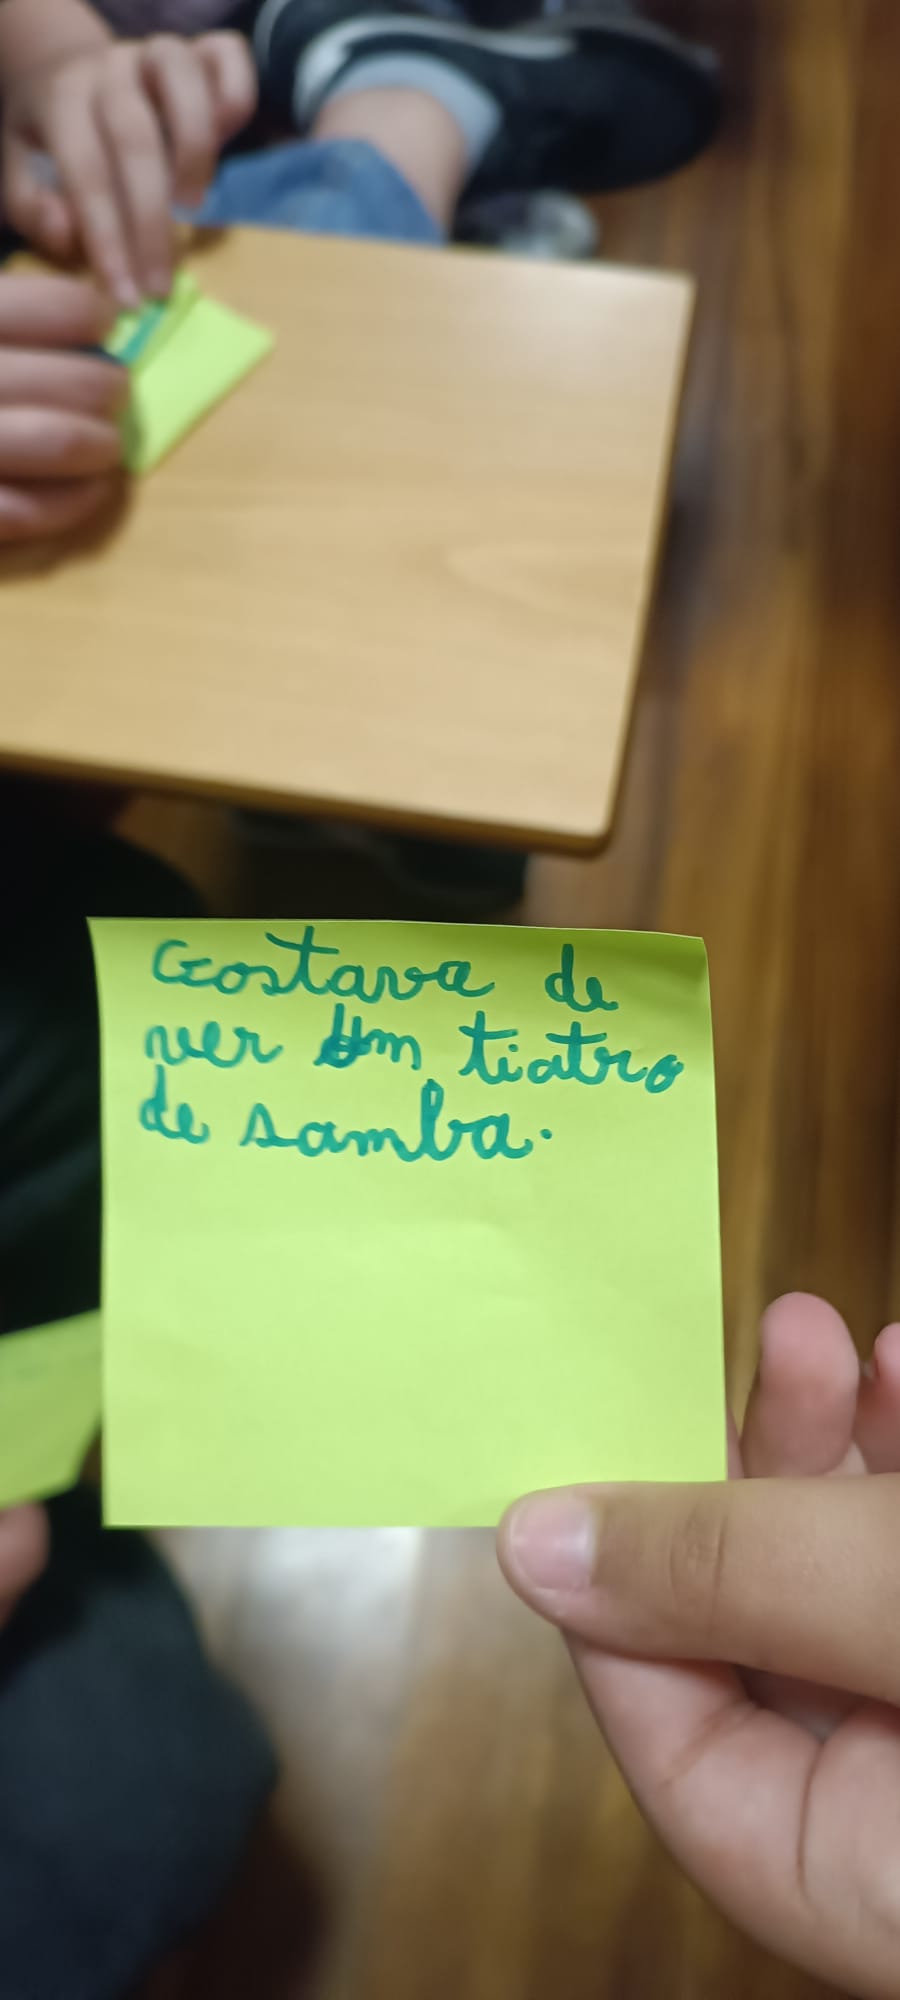 Gostava de
ver um tiatro
de samba.